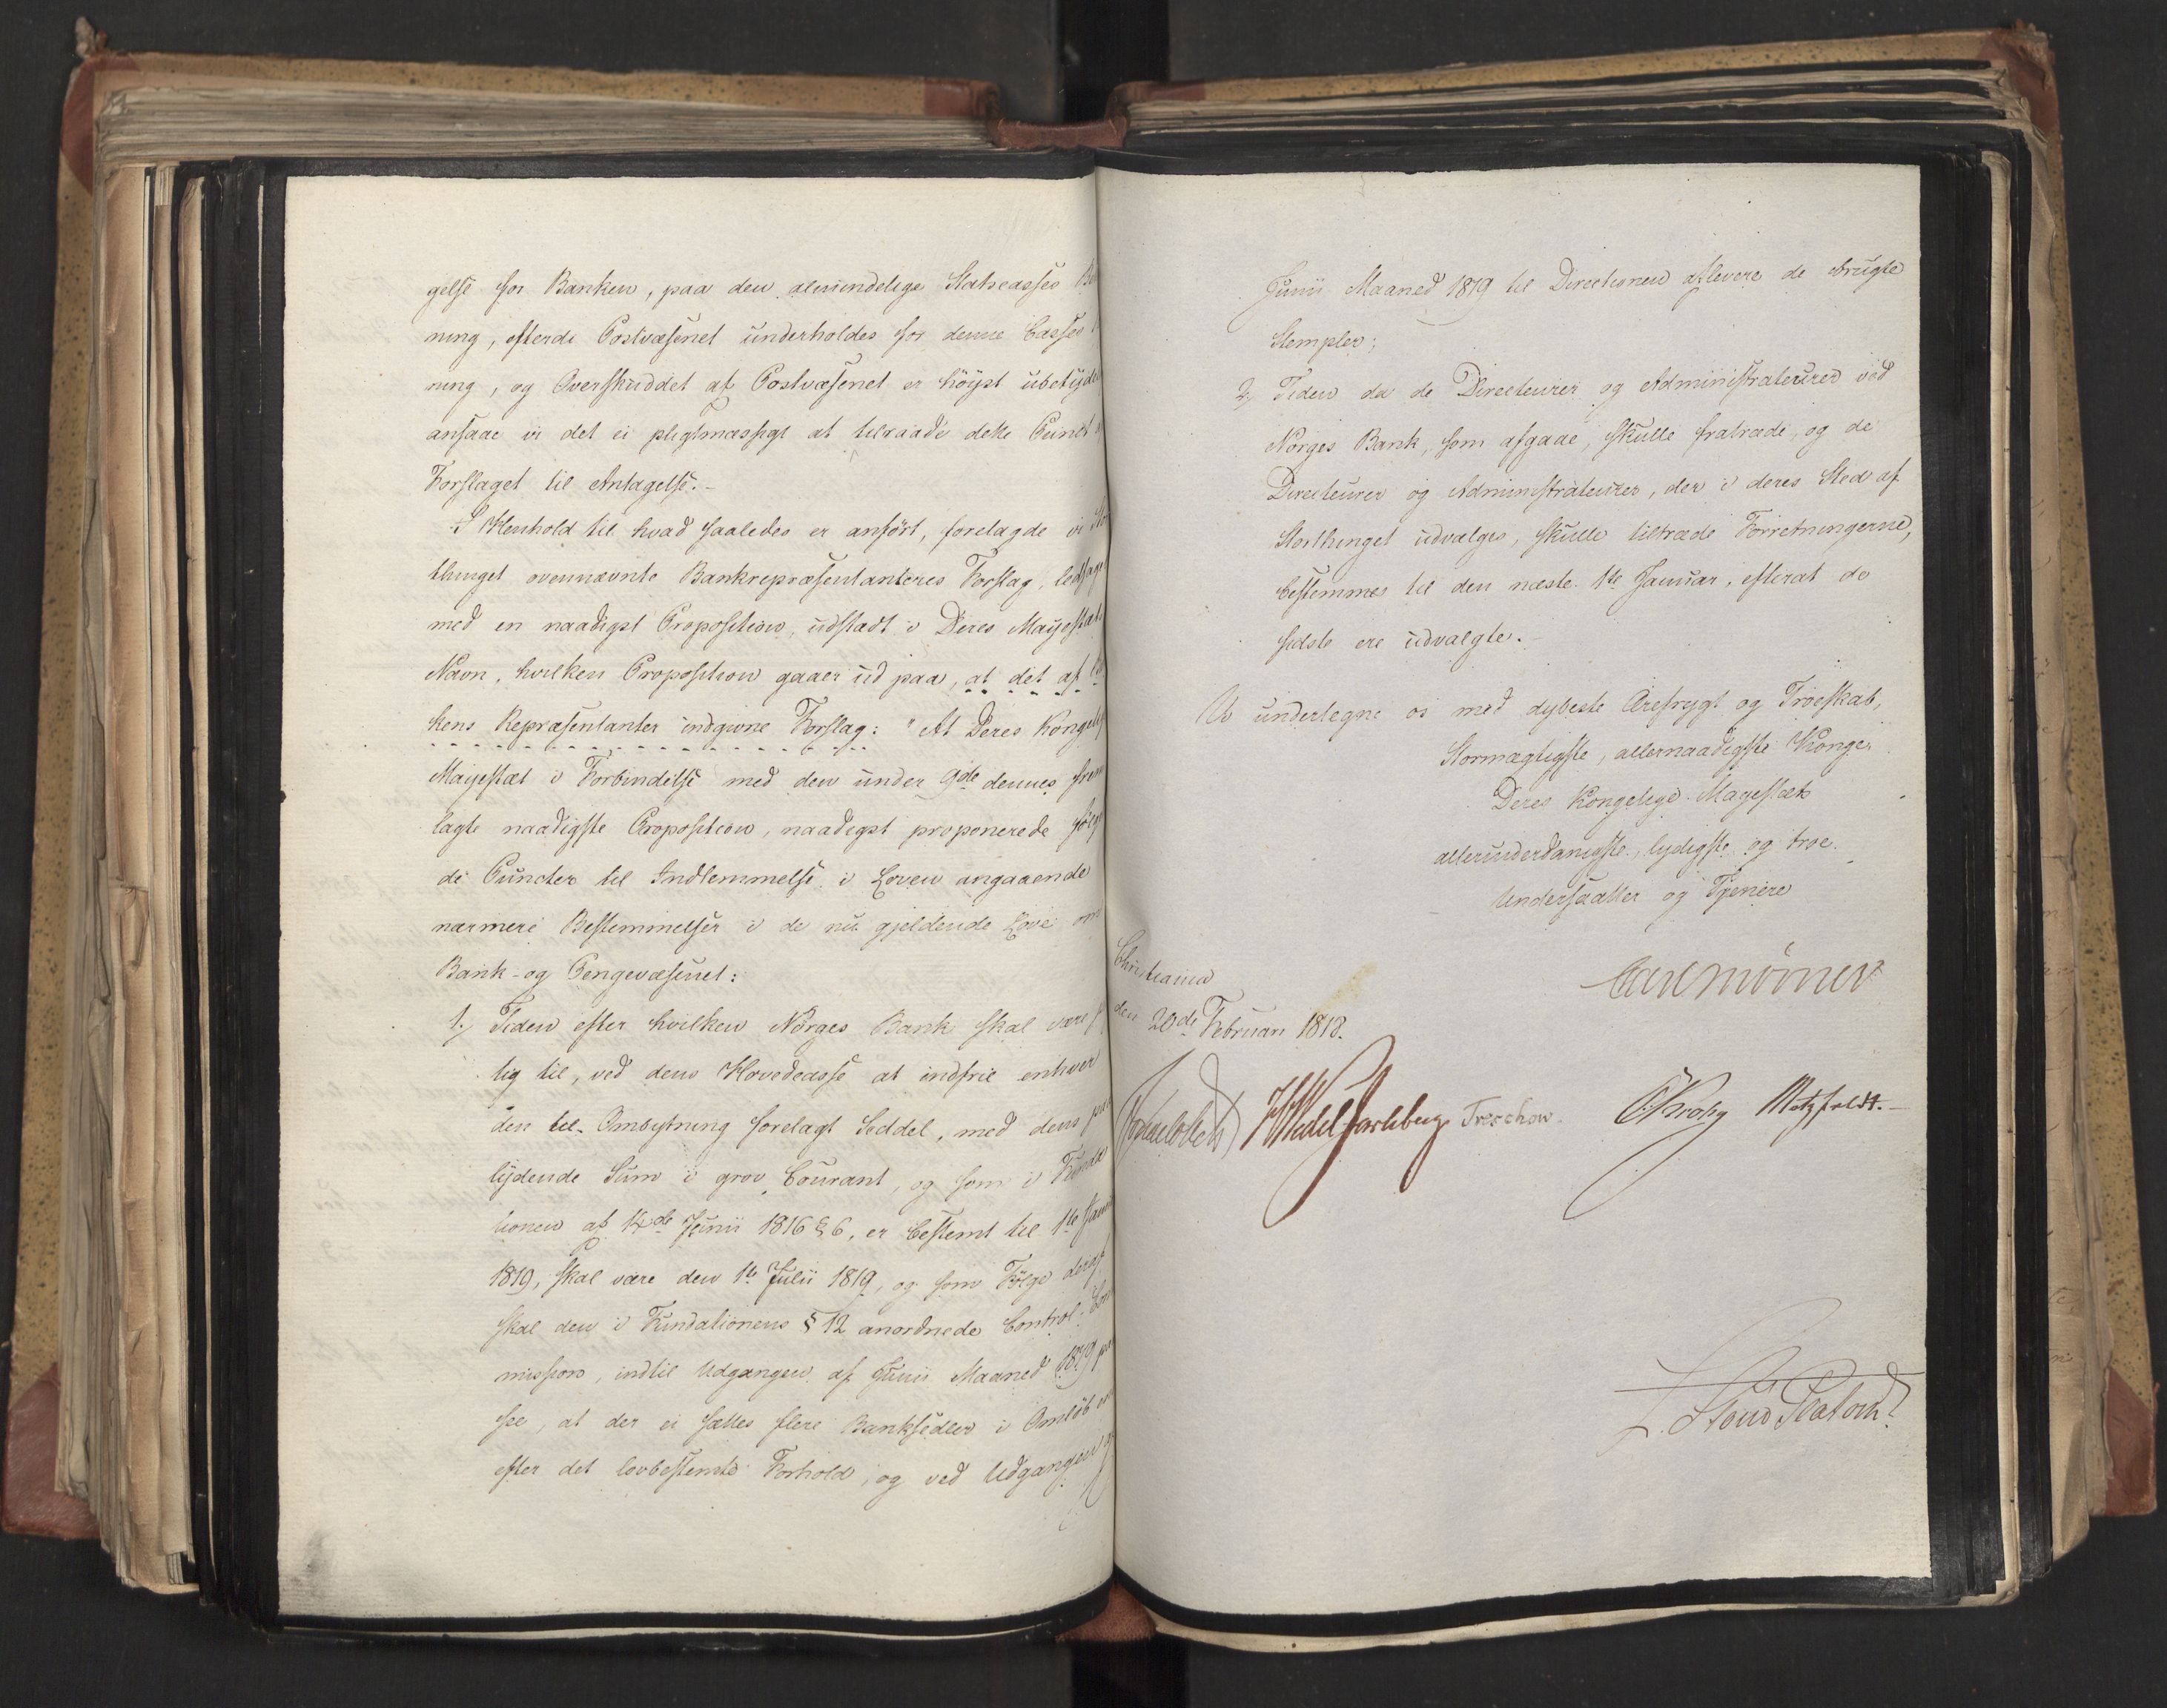 gelse for Banken, paa den almindelige Statscasses
ning, efterdi Postvæsenet underholdes for denne Casses
ning, og Overskuddet af Postvæsenet er höyst
ansaae vi det ei pligtmæssigt at tilraade dette Punct
Forslaget til Antagelse.-
I Henhold til hvad saaledes er anfört, forelagde vi
thinget ovennævnte Bankrepræsentanteres Forslag,
med en naadigst Proposition, udstædt i Deres Mayestæts
Navn, hvilken Proposition gaaer ud paa, at det af
kens Repræsentanter indgivne Forslag: "At Deres
Mayestæt i Forbindelse med den under 9de dennes
lagte naadigste Proposition, naadigst proponerede
de Puncter til Indlemmelse i Loven angaaende
nærmere Bestemmelser i de nu gjeldende Love om
Bank- og Pengevæsenet:
1, Tiden efter hvilken Norges Bank skal være
tig til, ved dens Hovedcasse at indfrie enhver
den til Ombytning forelagt Seddel, med dens
lydende Sum i grov Courant, og som i
tionen af 14de Junii 1816 § 6, er bestemt til 1te
1819, skal være den 1te Julii 1819, og som Fölge deraf
skal den i Fundationens § 12 anordnede Control-
mission, indtil Udgangen af Junii Maaned 1819
see, at der ei sættes flere Banksedler i Omlöb
efter det lovbestemte Forhold, og ved Udgangen
Junii Maaned 1819 til Directionen aflevere de brugte
Stempler;
2, Tiden da de Directeurer og Administrateurer ved
Norges Bank, som afgaae, skulle fratræde, og de
Directeurer og Administrateurer, der i deres Sted af
Storthinget udvælges, skulle tiltræde Forretningerne,
bestemmes til den næste 1te Januar, efterat de
sidste ere udvalgte.-
Vi undertegne os med dybeste Ærefrygt og Troeskab,
Stormægtigste, allernaadigste Konge!
Deres Kongelige Mayestæts
allerunderdanigste, lydigste og troe
Undersaatter og Tjenere
Carl Mörner
Christiania
den 20de Februar 1818.
Sommerhielm HWedel Jarlsberg Treschow. CKrohg Motzfeldt.-
L. Stoud Platou